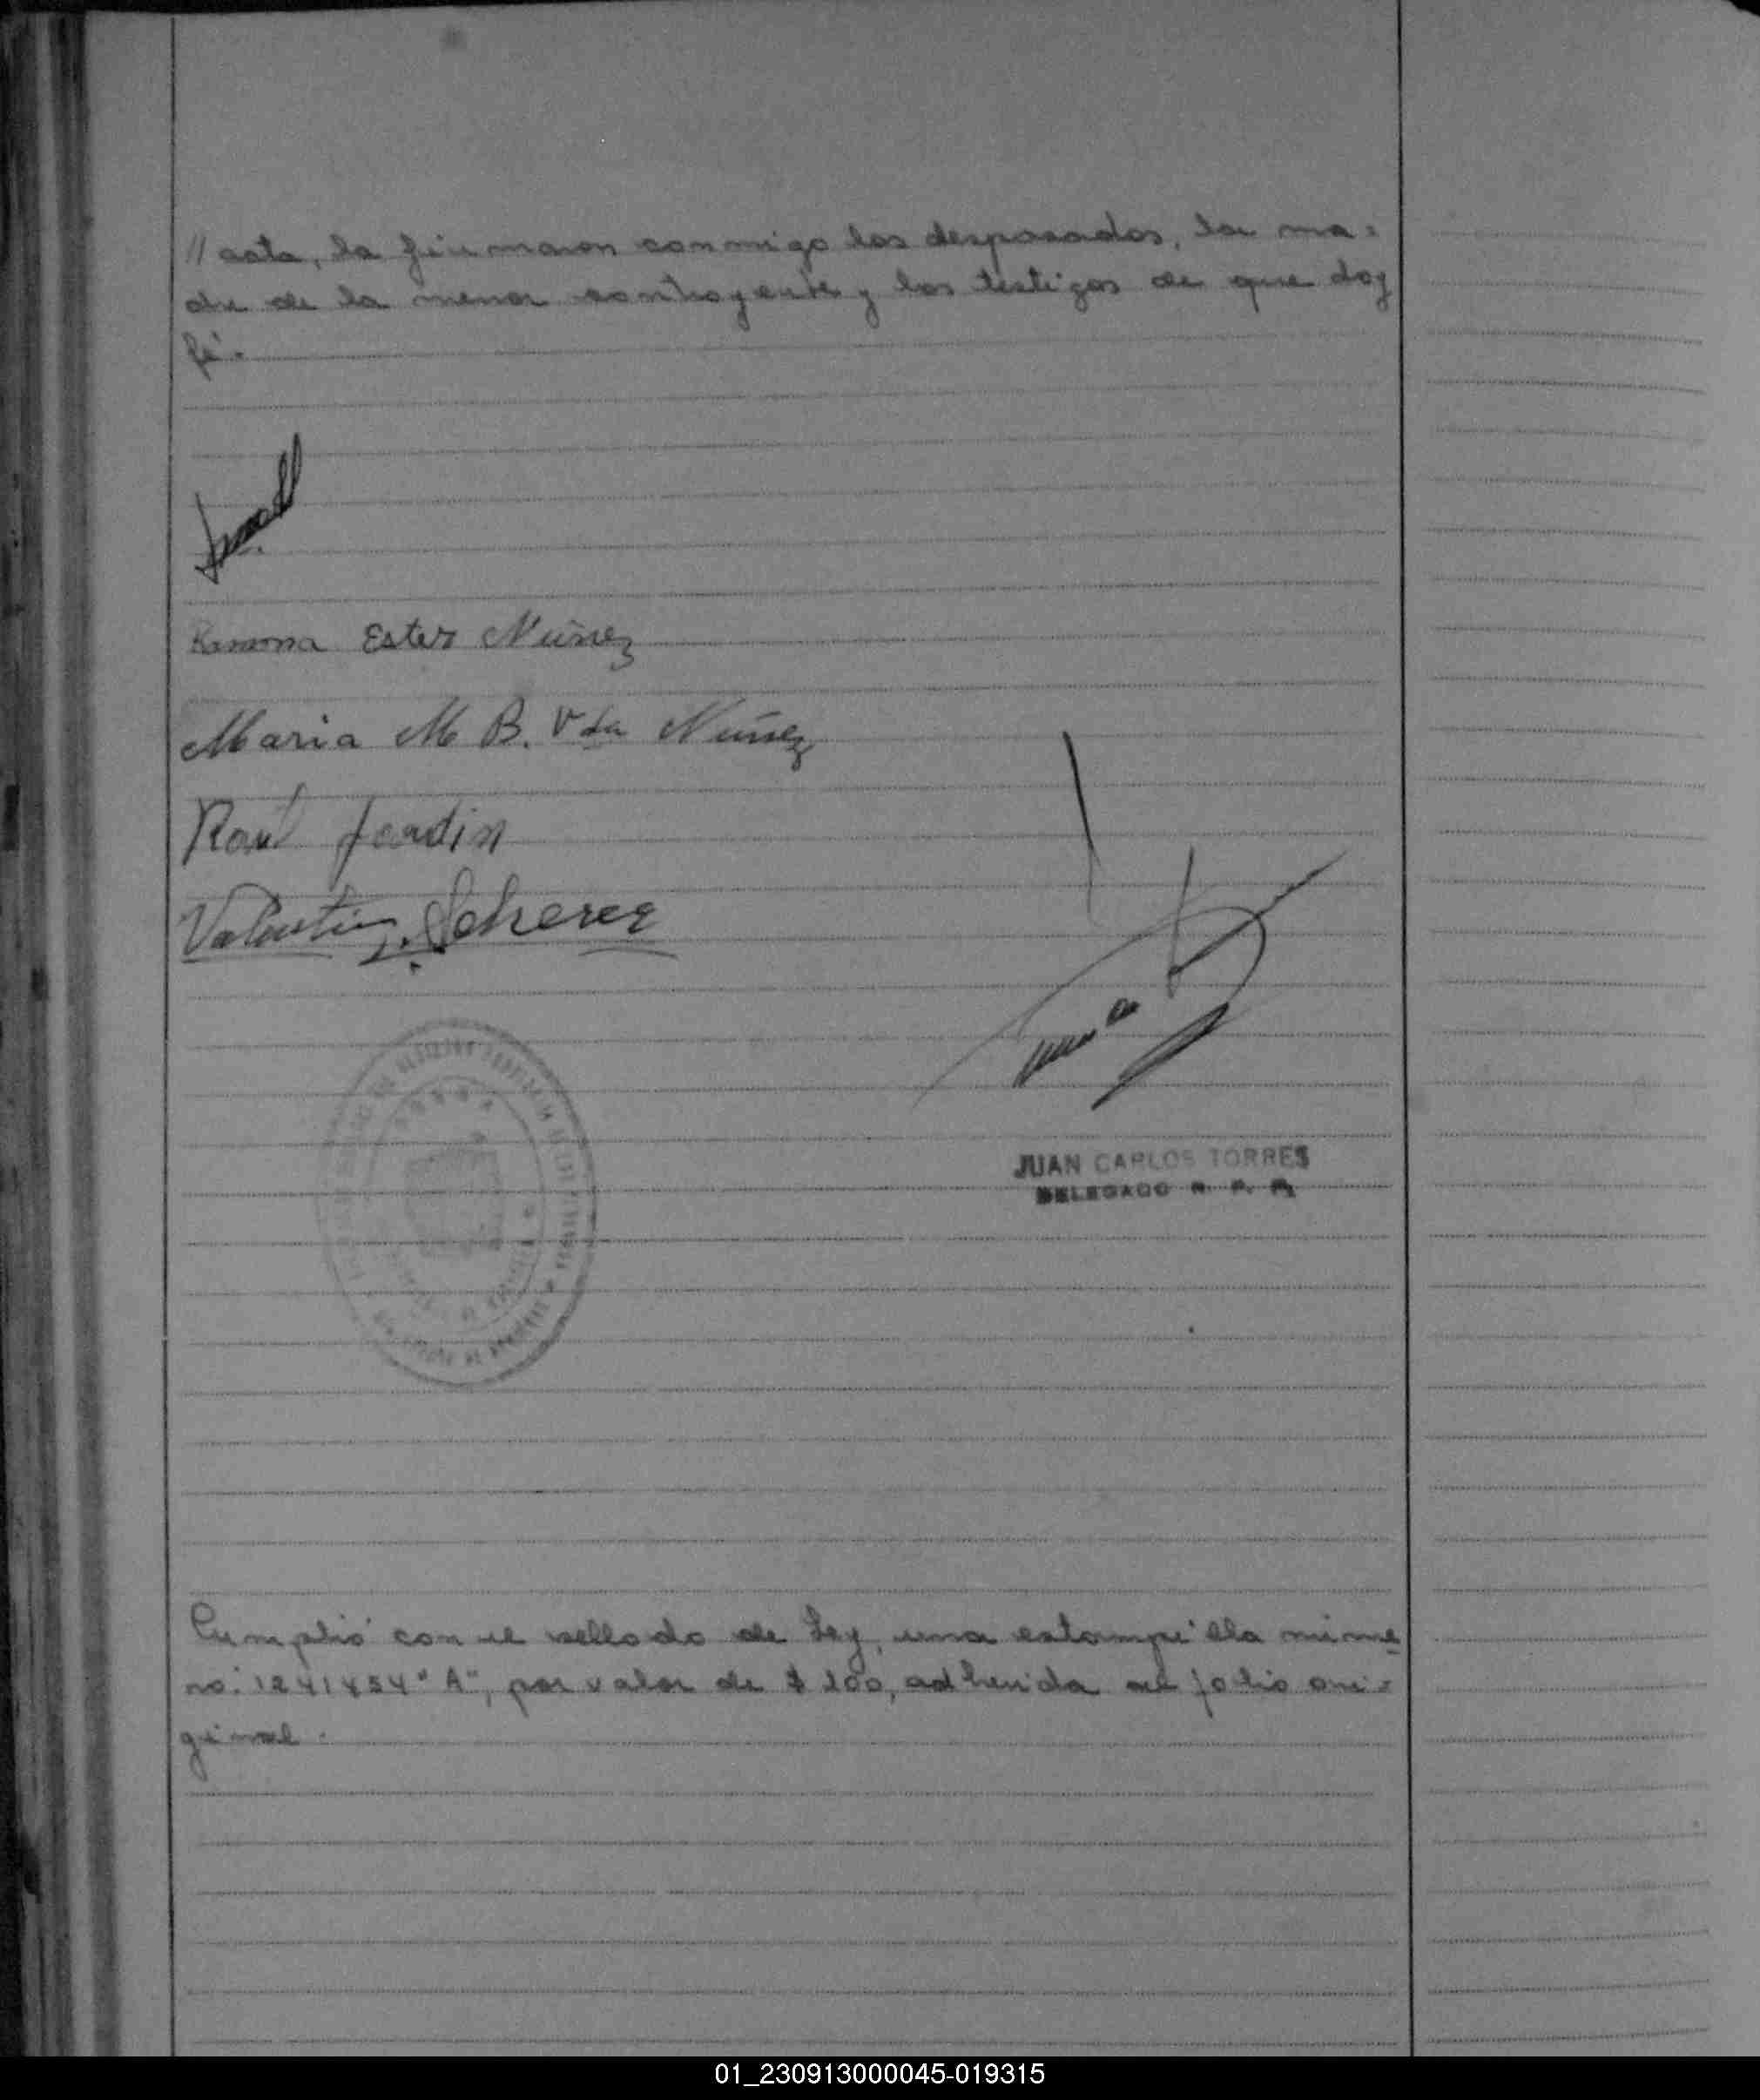 // acta, la firmaron conmigo los desposados, la ma=
dre de la menor contrayente y los testigos de que doy
fé.-
Ramona Ester Núñez
Maria M B. Vda Núñez
Raul Jardin
Valentin Scherer
JUAN CARLOS TORRES
DELEGADO R. P. P.
Cumplió con el sellado de Ley, una estampilla núme
ro: 1241454 "A", por valor de $ 200, adherida al folio ori=
ginal.-
01_230913000045-019315